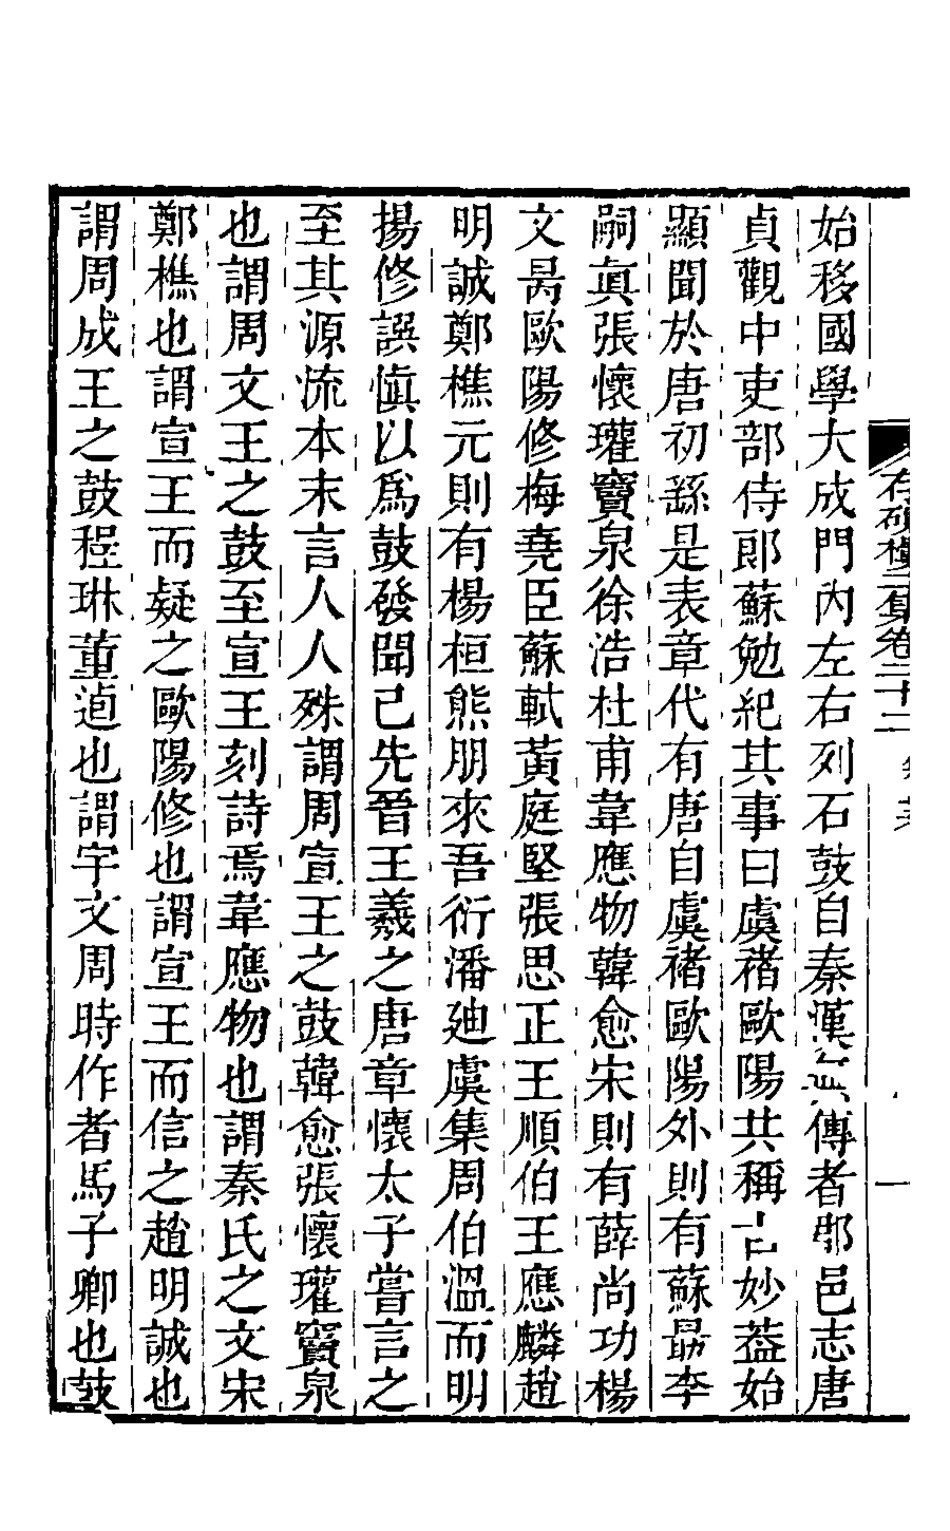 存硏樓二集卷二十二
始移國學大成門內左右列石鼓自秦漢無傳者郡邑志唐
貞觀中吏部侍郎蘇勉紀其事曰虞褚歐陽共稱古妙葢始
顯聞於唐初繇是表章代有唐自虞褚歐陽外則有蘇勗李
嗣眞張懷瓘竇泉徐浩杜甫韋應物韓愈宋則有薛尚功楊
文昺歐陽修梅堯臣蘇軾黃庭堅張思正王順伯王應麟趙
明誠鄭樵元則有楊桓熊朋來吾衍潘廸虞集周伯溫而明
揚修誤愼以爲鼓發聞己先晉王羲之唐章懷太子嘗言之
至其源流本末言人人殊謂周宣王之鼓韓愈張懷瓘竇泉
也謂周文王之鼓至宣王刻詩焉韋應物也謂秦氏之文宋
鄭樵也謂宣王而疑之歐陽修也謂宣王而信之趙明誠也
謂周成王之鼓程琳董逌也謂宇文周時作者馬子卿也鼓